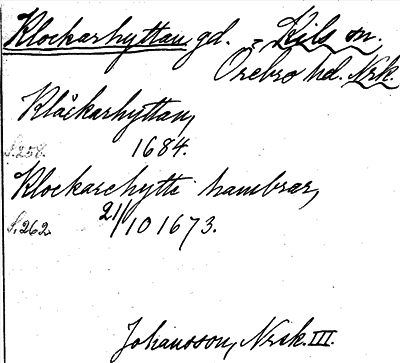 Klockarhyttan, gd. - Kils sn.
Örebro hd. Nrk.
Klåckarhyttan,
S.258. 1684.
Klockarehytte hambrar,
S.262. 21/10 1673.
Johansson, Nrsk. III.